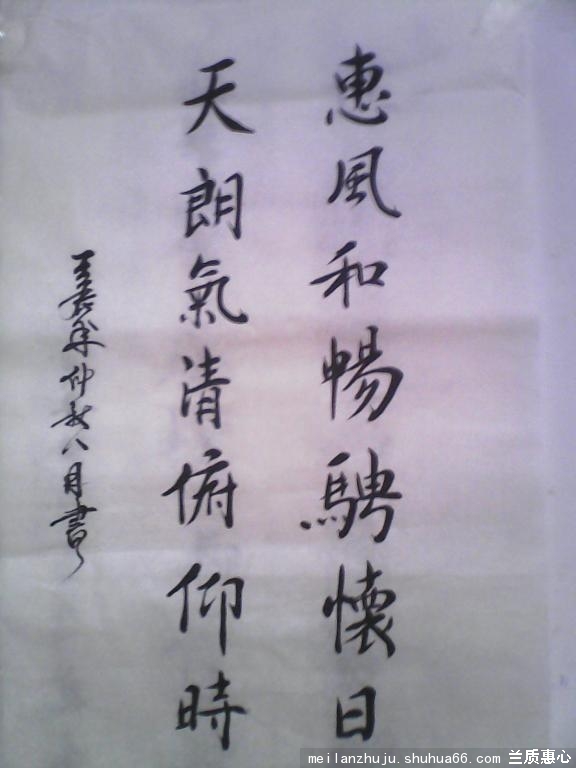 惠風和暢騁懷日
天朗氣清俯仰時
仲秋八月書
meilanzhuju.shuhua66.com 兰质惠心